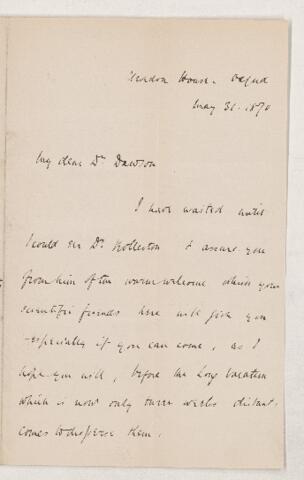 House. Oxford
May 31. 1870
My dear Dr Dawson
I have waited until
I could see Dr. Rolleston & assure you
from him of the warm welcome which your
scientific friends here will give you
- especially if you can come, as I
hope you will, before the Long Vacation
which is now only three weeks distant
comes to disperse them.